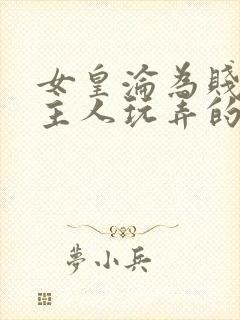 女皇淪為賤
主人玩弄的
夢小兵